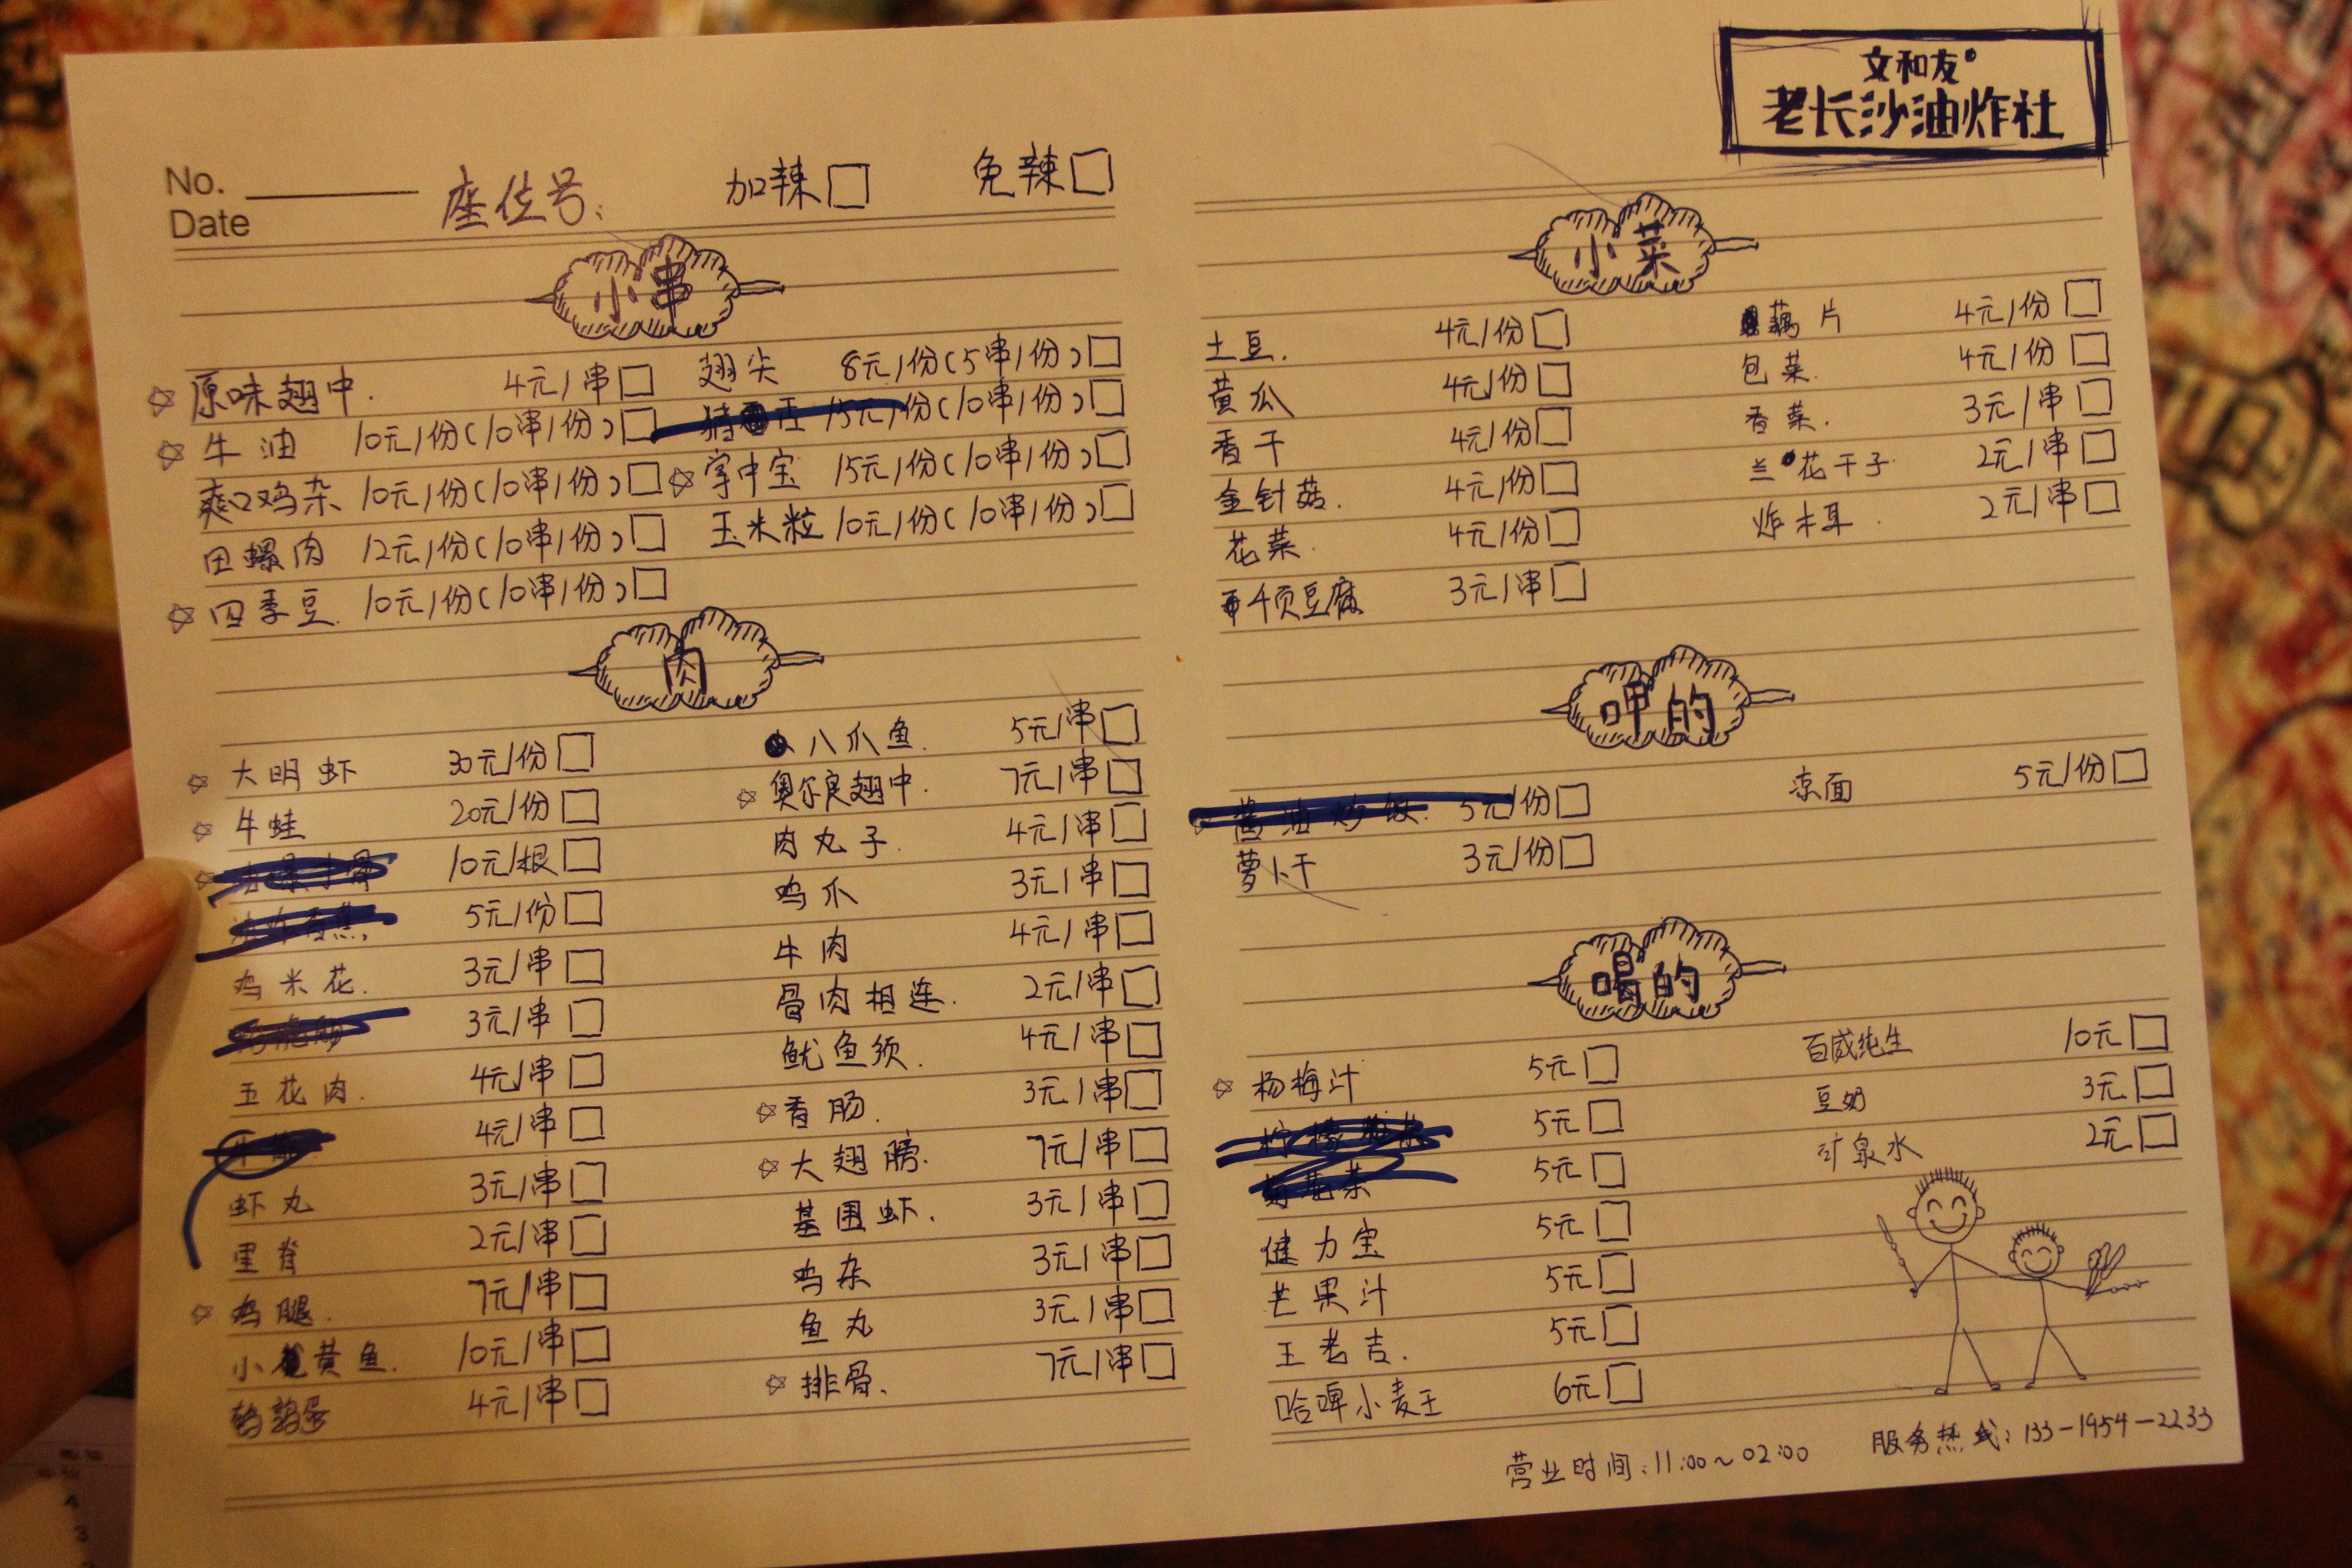 文和友
老长沙油炸社
No.
Date
座位号: 加辣 免辣
小串
原味翅中. 4元/串 翅尖 8元/份(5串/份)
牛油 10元/份(10串/份) 15元/份(10串/份)
爽口鸡杂 10元/份(10串/份) 掌中宝 15元/份(10串/份)
田螺肉 12元/份(10串/份) 玉米粒 10元/份(10串/份)
四季豆. 10元/份(10串/份)
肉
大明虾 30元/份 八爪鱼. 5元/串
牛蛙 20元/份 奥尔良翅中. 7元/串
10元/根 肉丸子. 4元/串
5元/份 鸡爪 3元/串
鸡米花. 3元/串 牛肉 4元/串
3元/串 骨肉相连. 2元/串
五花肉. 4元/串 鱿鱼须. 4元/串
4元/串 香肠. 3元/串
虾丸 3元/串 大翅膀. 7元/串
里脊 2元/串 基围虾. 3元/串
鸡腿. 7元/串 鸡杂 3元/串
小黄鱼. 10元/串 鱼丸 3元/串
鹌鹑蛋 4元/串 排骨. 7元/串
小菜
土豆. 4元/份 藕片 4元/份
黄瓜 4元/份 包菜. 4元/份
香干 4元/份 香菜. 3元/串
金针菇. 4元/份 兰花干子. 2元/串
花菜. 4元/份 炸木耳. 2元/串
千页豆腐 3元/串
呷的
酱油炒饭. 5元/份 凉面 5元/份
萝卜干 3元/份
喝的
杨梅汁 5元 百威纯生 10元
5元 豆奶 3元
5元 矿泉水 2元
健力宝 5元
芒果汁 5元
王老吉. 5元
哈啤小麦王 6元
营业时间:11:00~02:00 服务热线:133-1954-2233